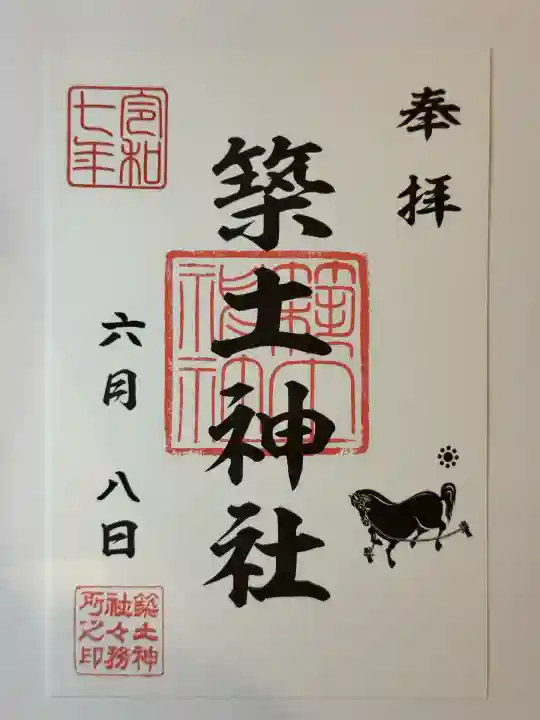 奉拝
築土神社
築土神社
令和七年
六月八日
築土神社々務所之印